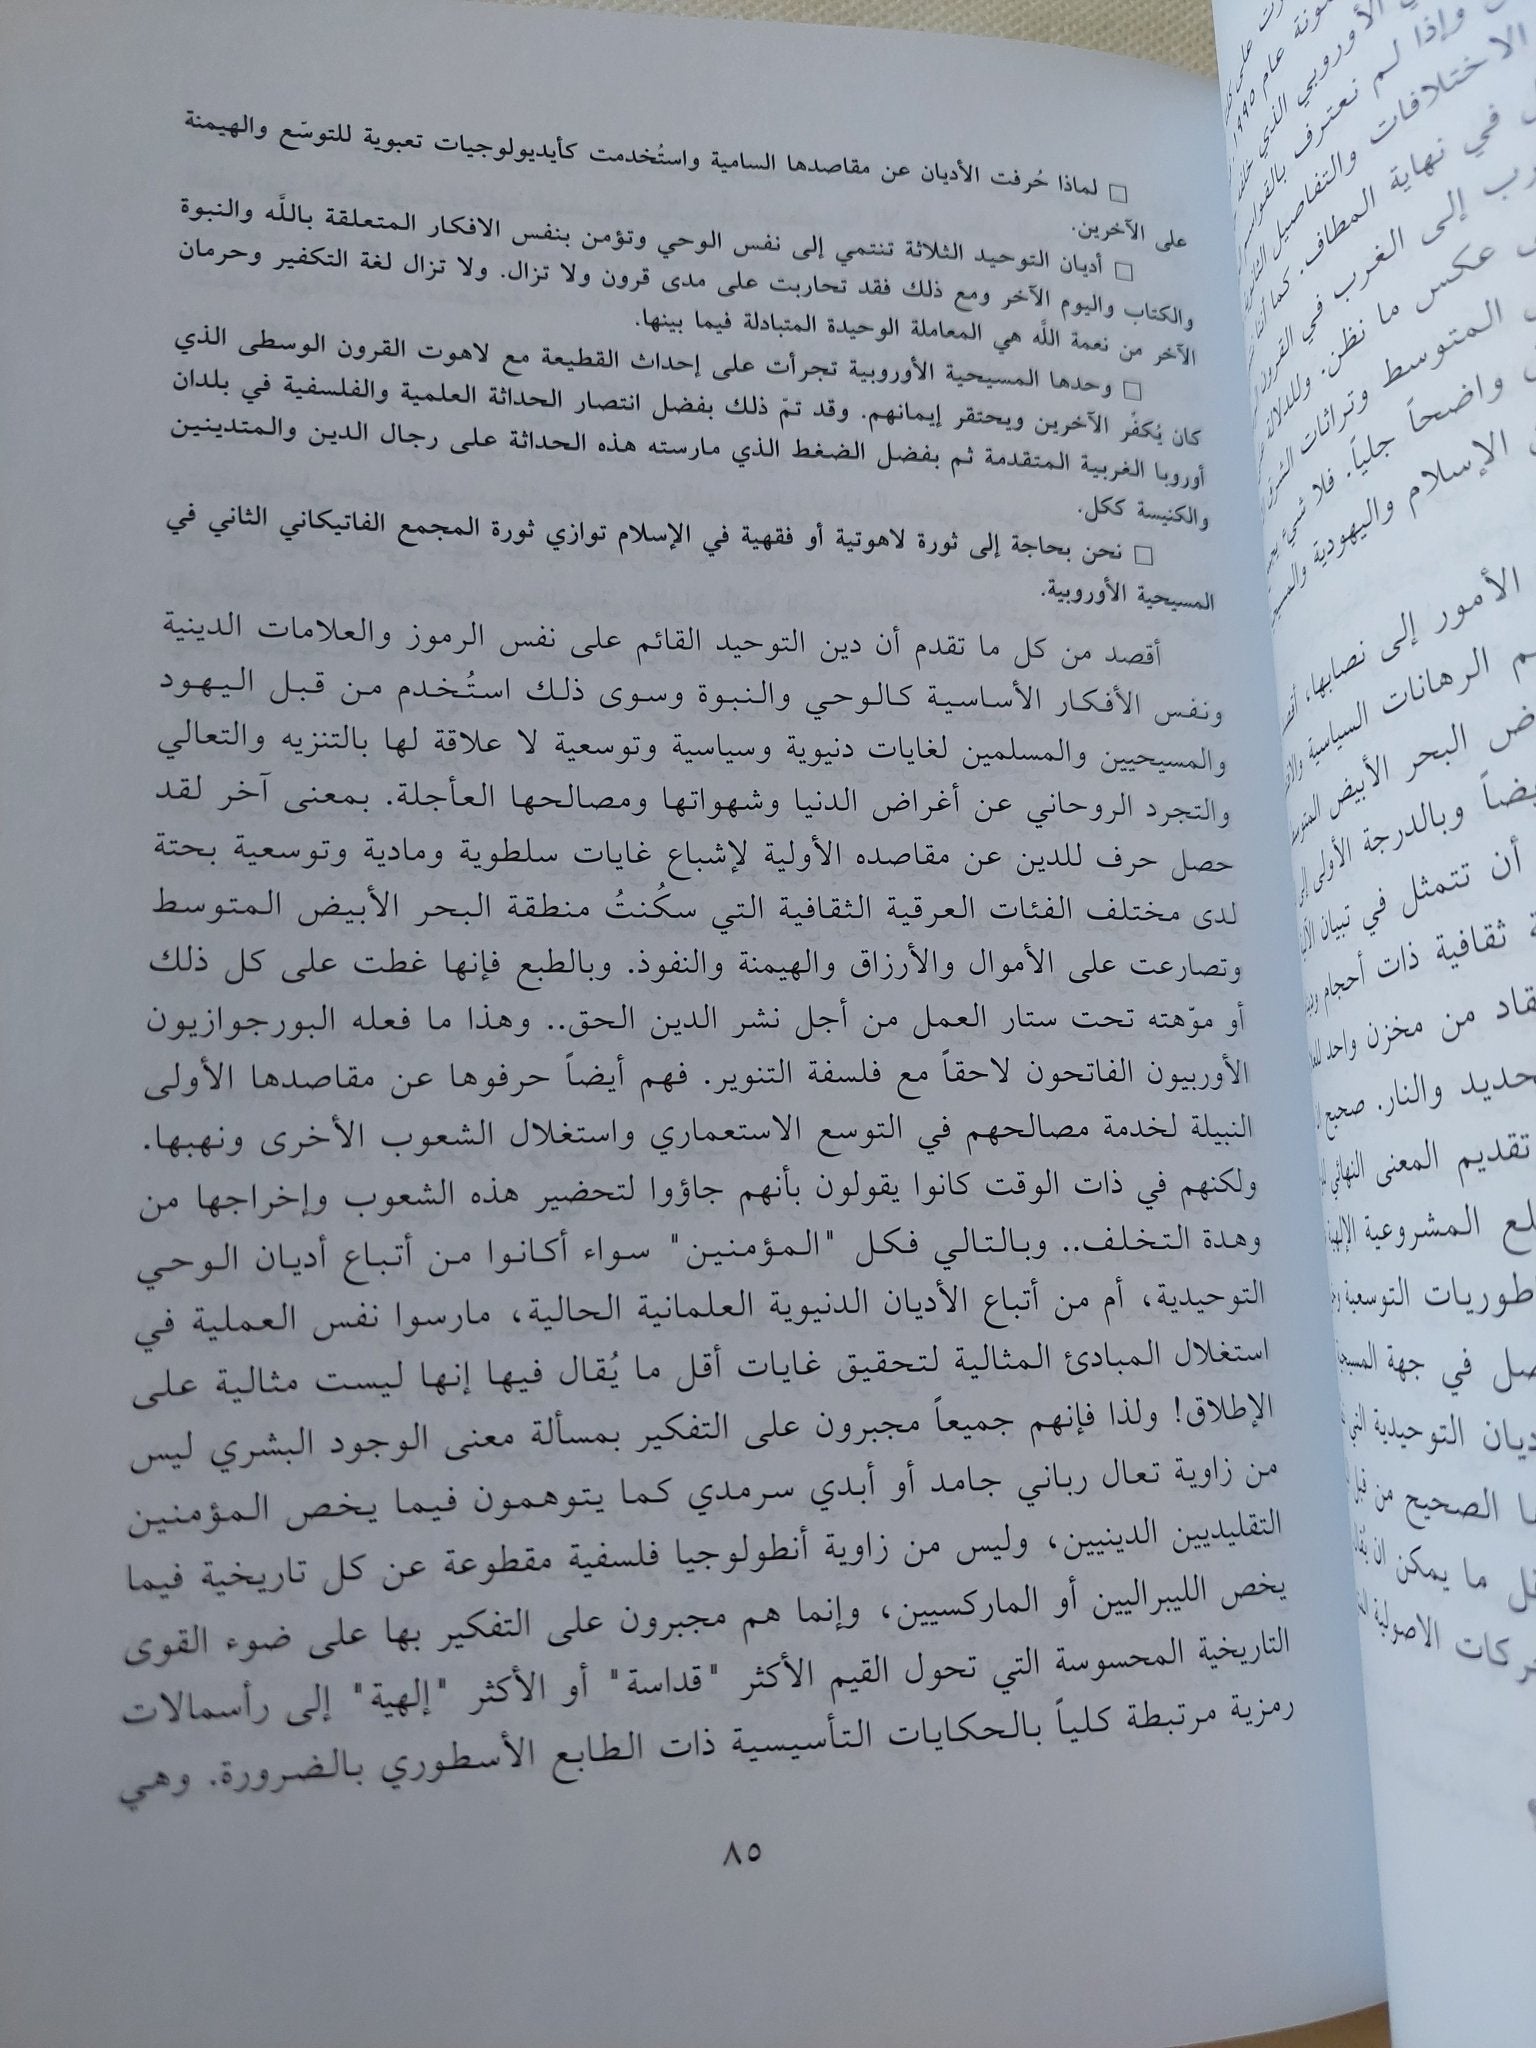 □ لماذا حُرفت الأديان عن مقاصدها السامية واستُخدمت كأيديولوجيات تعبوية للتوسّع والهيمنة
على الآخرين.
□ أديان التوحيد الثلاثة تنتمي إلى نفس الوحي وتؤمن بنفس الافكار المتعلقة باللَّه والنبوة
والكتاب واليوم الآخر ومع ذلك فقد تحاربت على مدى قرون ولا تزال. ولا تزال لغة التكفير وحرمان
الآخر من نعمة اللَّه هي المعاملة الوحيدة المتبادلة فيما بينها.
□ وحدها المسيحية الأوروبية تجرأت على إحداث القطيعة مع لاهوت القرون الوسطى الذي
كان يُكفّر الآخرين ويحتقر إيمانهم. وقد تمّ ذلك بفضل انتصار الحداثة العلمية والفلسفية في بلدان
أوروبا الغربية المتقدمة ثم بفضل الضغط الذي مارسته هذه الحداثة على رجال الدين والمتدينين
والكنيسة ككل.
□ نحن بحاجة إلى ثورة لاهوتية أو فقهية في الإسلام توازي ثورة المجمع الفاتيكاني الثاني في
المسيحية الأوروبية.
أقصد من كل ما تقدم أن دين التوحيد القائم على نفس الرموز والعلامات الدينية
ونفس الأفكار الأساسية كالوحي والنبوة وسوى ذلك استُخدم من قبل اليهود
والمسيحيين والمسلمين لغايات دنيوية وسياسية وتوسعية لا علاقة لها بالتنزيه والتعالي
والتجرد الروحاني عن أغراض الدنيا وشهواتها ومصالحها العأجلة. بمعنى آخر لقد
حصل حرف للدين عن مقاصده الأولية لإشباع غايات سلطوية ومادية وتوسعية بحتة
لدى مختلف الفئات العرقية الثقافية التي سكُنتُ منطقة البحر الأبيض المتوسط
وتصارعت على الأموال والأرزاق والهيمنة والنفوذ. وبالطبع فإنها غطت على كل ذلك
أو موّهته تحت ستار العمل من أجل نشر الدين الحق.. وهذا ما فعله البورجوازيون
الأوربيون الفاتحون لاحقاً مع فلسفة التنوير. فهم أيضاً حرفوها عن مقاصدها الأولى
النبيلة لخدمة مصالحهم في التوسع الاستعماري واستغلال الشعوب الأخرى ونهبها.
ولكنهم في ذات الوقت كانوا يقولون بأنهم جاؤوا لتحضير هذه الشعوب وإخراجها من
وهدة التخلف.. وبالتالي فكل "المؤمنين" سواء أكانوا من أتباع أديان الوحي
التوحيدية، أم من أتباع الأديان الدنيوية العلمانية الحالية، مارسوا نفس العملية في
استغلال المبادئ المثالية لتحقيق غايات أقل ما يُقال فيها إنها ليست مثالية على
الإطلاق! ولذا فإنهم جميعاً مجبرون على التفكير بمسألة معنى الوجود البشري ليس
من زاوية تعال رباني جامد أو أبدي سرمدي كما يتوهمون فيما يخص المؤمنين
التقليديين الدينيين، وليس من زاوية أنطولوجيا فلسفية مقطوعة عن كل تاريخية فيما
يخص الليبراليين أو الماركسيين، وإنما هم مجبرون على التفكير بها على ضوء القوى
التاريخية المحسوسة التي تحول القيم الأكثر "قداسة" أو الأكثر "إلهية" إلى رأسمالات
رمزية مرتبطة كلياً بالحكايات التأسيسية ذات الطابع الأسطوري بالضرورة. وهي
٨٥
عام ١٩٩٥
الأوروبي الذي خلف
وإذا لم نعترف بالقواسم
الاختلافات والتفاصيل الثانوية
في نهاية المطاف. كما أننا
إلى الغرب في القرون
عكس ما نظن. وللدلالة
المتوسط وتراثات
واضحاً جلياً. فلا شيء
الإسلام واليهودية
الأمور إلى نصابها،
الرهانات السياسية
البحر الأبيض
وبالدرجة الأولى
أن تتمثل في تبيان
ثقافية ذات أحجام
من مخزن واحد
والنار. صحيح
تقديم المعنى النهائي
المشروعية الإلهية
التوسعية
في جهة
التوحيدية التي
الصحيح من قبل
ما يمكن ان يقال
الاصولية